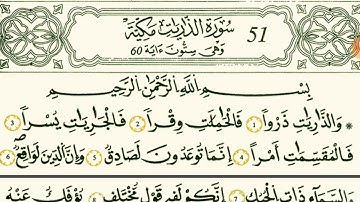 51 سُورَةُ الذَّارِيَاتِ مَكِّيَّة
وَهِيَ سِتُّونَ ءَايَة 60
بِسْمِ اللَّهِ الرَّحْمَٰنِ الرَّحِيمِ
وَالذَّارِيَاتِ ذَرْواً 1 فَالْحَامِلَاتِ وِقْراً 2 فَالْجَارِيَاتِ يُسْراً 3
فَالْمُقَسِّمَاتِ أَمْراً 4 إِنَّمَا تُوعَدُونَ لَصَادِقٌ 5 وَإِنَّ الدِّينَ لَوَاقِعٌ 6
وَالسَّمَاءِ ذَاتِ الْحُبُكِ 7 إِنَّكُمْ لَفِي قَوْلٍ مُخْتَلِفٍ 8 يُؤْفَكُ عَنْهُ